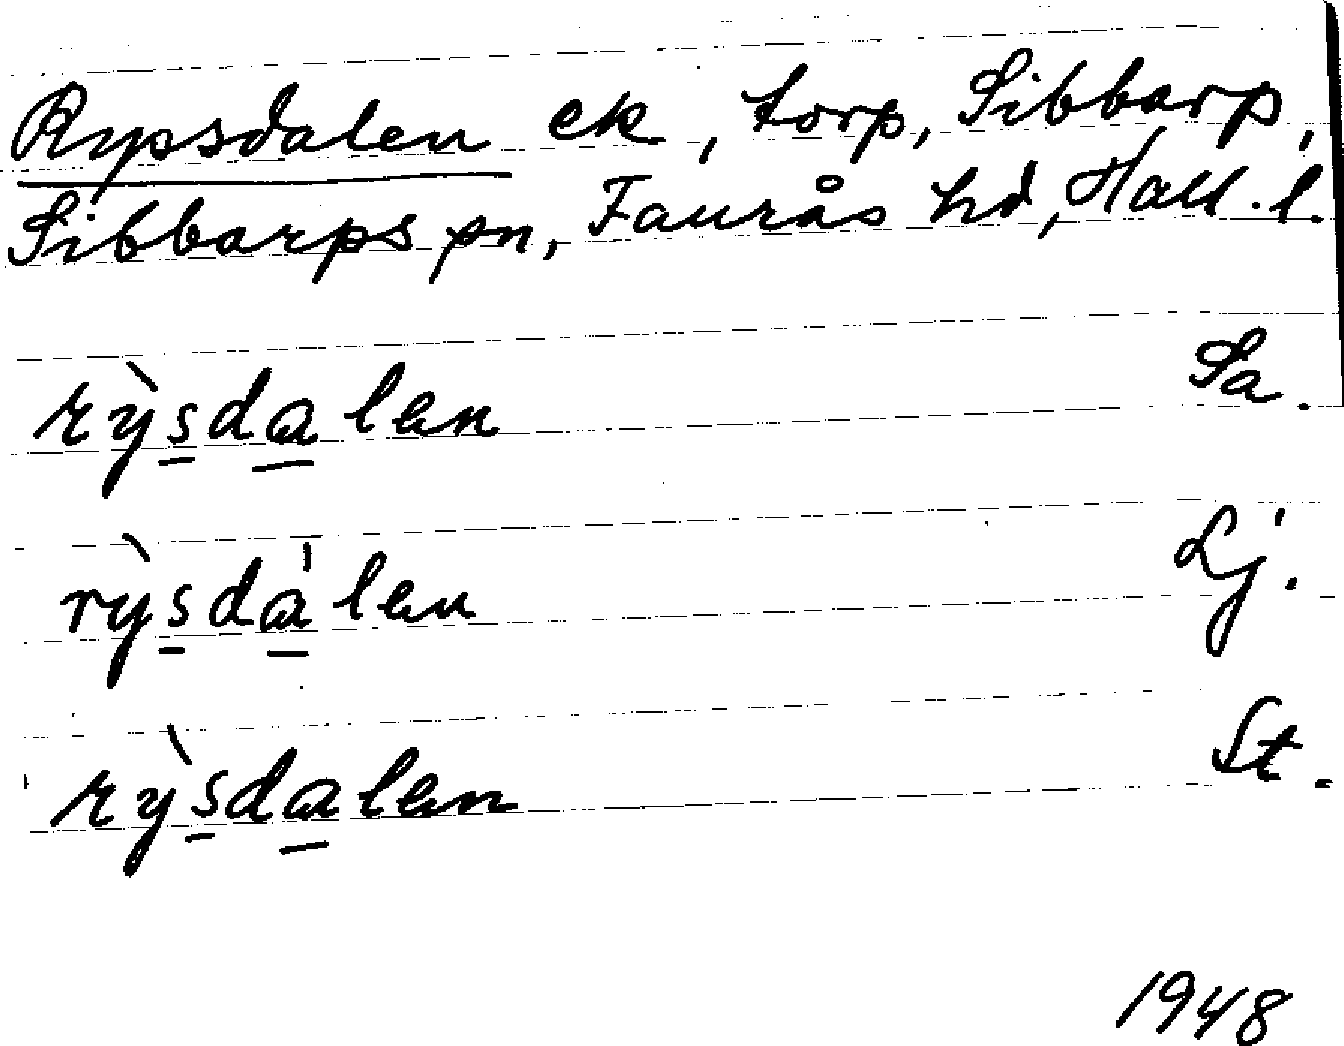 Rypsdalen ek, torp, Sibbarp,
Sibbarps sn, Faurås hd, Hall. l.
rỳsdalen Sa.
rỳsdálen Lj.
rỳsdalen St.
1948